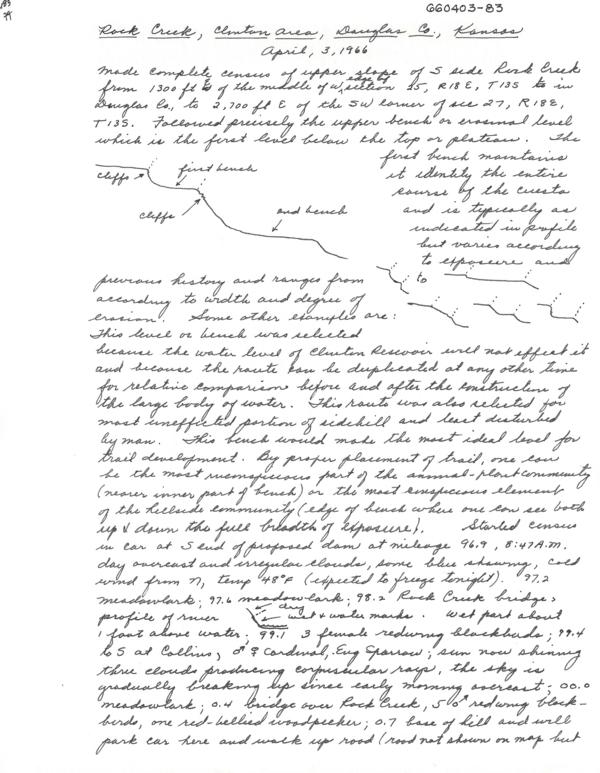 GG0403-83
Rock Creek, Clinton Area, Douglas Co., Kansas
April, 3, 1966
Made complete census of upper slope of S side Rock Creek
from 1300 ft E of the middle of W. edge of section 25, R18E, T13S to in
Douglas Co, to 2,700 ft E of the SW corner of sec 27, R18E,
T13S. Followed precisely the upper bench or erosional level
which is the first level below the top or plateau. The
first bench maintains
it identity the entire
course of the cuesta
and is typically as
indicated in profile
but varies according
to exposure and
cliffs
first bench
cliffs
2nd bench
previous history and ranges from
to
according to width and degree of
erosion. Some other examples are:
This level or bench was selected
because the water level of Clinton Resevoir will not effect it
and because the route can be duplicated at any other time
for relative comparison before and after the construction of
the large body of water. This route was also selected for
most uneffected portion of sidehill and least disturbed
by man. This bench would make the most ideal level for
trail development. By proper placement of trail, one can
be the most inconspicuous part of the animal-plant community
(nearer inner part of bench) or the most conspicious element
of the hillside community (edge of bench where one can see both
up & down the full breadth of exposure). Started census
in car at S end of proposed dam at mileage 96.9, 8:47 A.M.
day overcast and irregular clouds, some blue showing, cold
wind from N, temp 48°F (expected to freeze tonight). 97.2
meadowlark; 97.6 meadowlark; 98.2 Rock Creek bridge;
profile of river
dry
wet & water marks. Wet part about
1 foot above water; 99.1 3 female redwing blackbirds; 99.4
to S at Collins, ♂ ♀ Cardinal, Eng Sparrow; sun now shining
thru clouds producing corpuscular rays, the sky is
gradually breaking up since early morning overcast; 00.0
meadowlark; 0.4 bridge over Rock Creek, 5 ♂ redwing black-
birds, one red-bellied woodpecker; 0.7 base of hill and will
park car here and walk up road (road not shown on map but